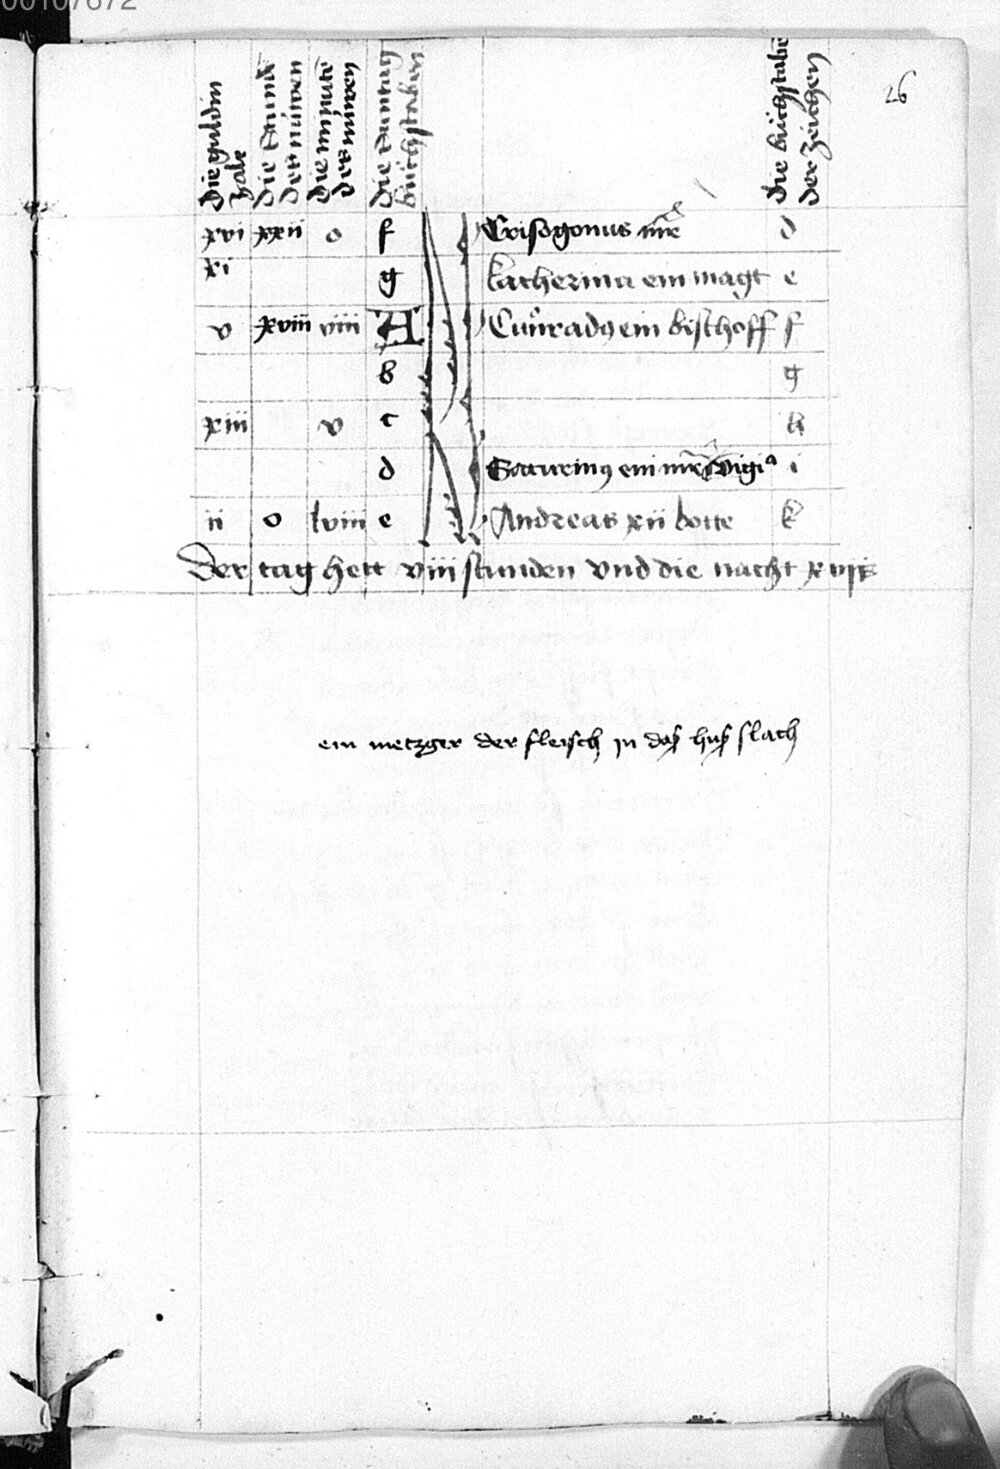 00107672
26
Die guldin zale
Die Stund der nuwen
Die minute der nuwen
Die Suntag buchstaben
Die buchstabe der zeichen
xvi xxii o f Crisogonus mre d
xi g katherina ein magt e
v xviii viii A Cuonradus ein bischoff f
b g
xiii v c h
d Saturinus ein mre vigia i
ii o lviii e Andreas xii botte k
Der tag hett viii stunden vnd die nacht xvi
ein metzger der fleisch in daß huß slach